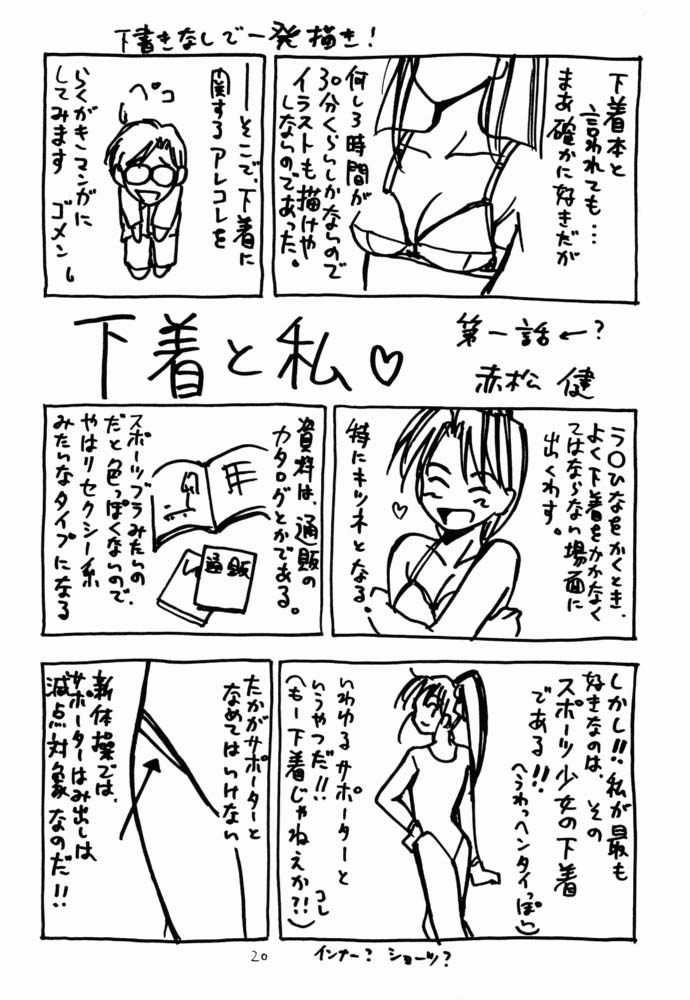 下書きなしで一発描き!
下着本と
言われても…
まあ確かに好きだが
何しろ時間が
30分くらいしかないので
イラストも描けや
しないのであった。
――そこで、下着に
関するアレコレを
ペコ
らくがきマンガに
してみます ゴメン
下着と私♡
第一話←?
赤松 健
ラ〇ひなをかくとき、
よく下着をかかなく
てはならない場面に
出くわす。
特にキツネとなる。
資料は、通販の
カタログとかである。
通販
スポーツブラみたいの
だと色っぽくないので、
やはりセクシー系
みたいなタイプになる
しかし!!私が最も
好きなのは、その
スポーツ少女の下着
である!!
(うわっヘンタイっぽい)
いわゆるサポーターと
いうやつだ!!
(もー下着じゃねえか?!)
コレ
たかがサポーターと
なめてはいけない
新体操では、
サポーターはみ出しは
減点対象なのだ!!
20
インナー? ショーツ?